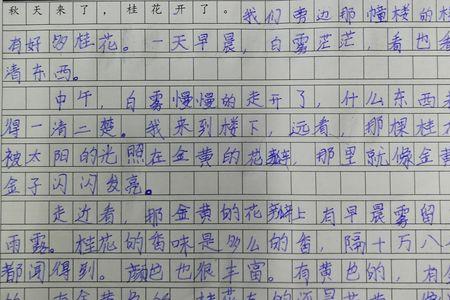 秋天来了，桂花开了。我们旁边那幢楼的桂
有好多桂花。一天早晨，白雾茫茫，看也看
清东西。
中午，白雾慢慢的走开了，什么东西
得一清二楚。我来到楼下，远看，那棵桂
被太阳的光照在金黄的花瓣，那里就像金黄
金子闪闪发亮。
走近看，那金黄的花瓣上有早晨雾留
雨露。桂花的香味是多么的香，隔十万八
都闻得到。颜色也很丰富。有黄色的，有